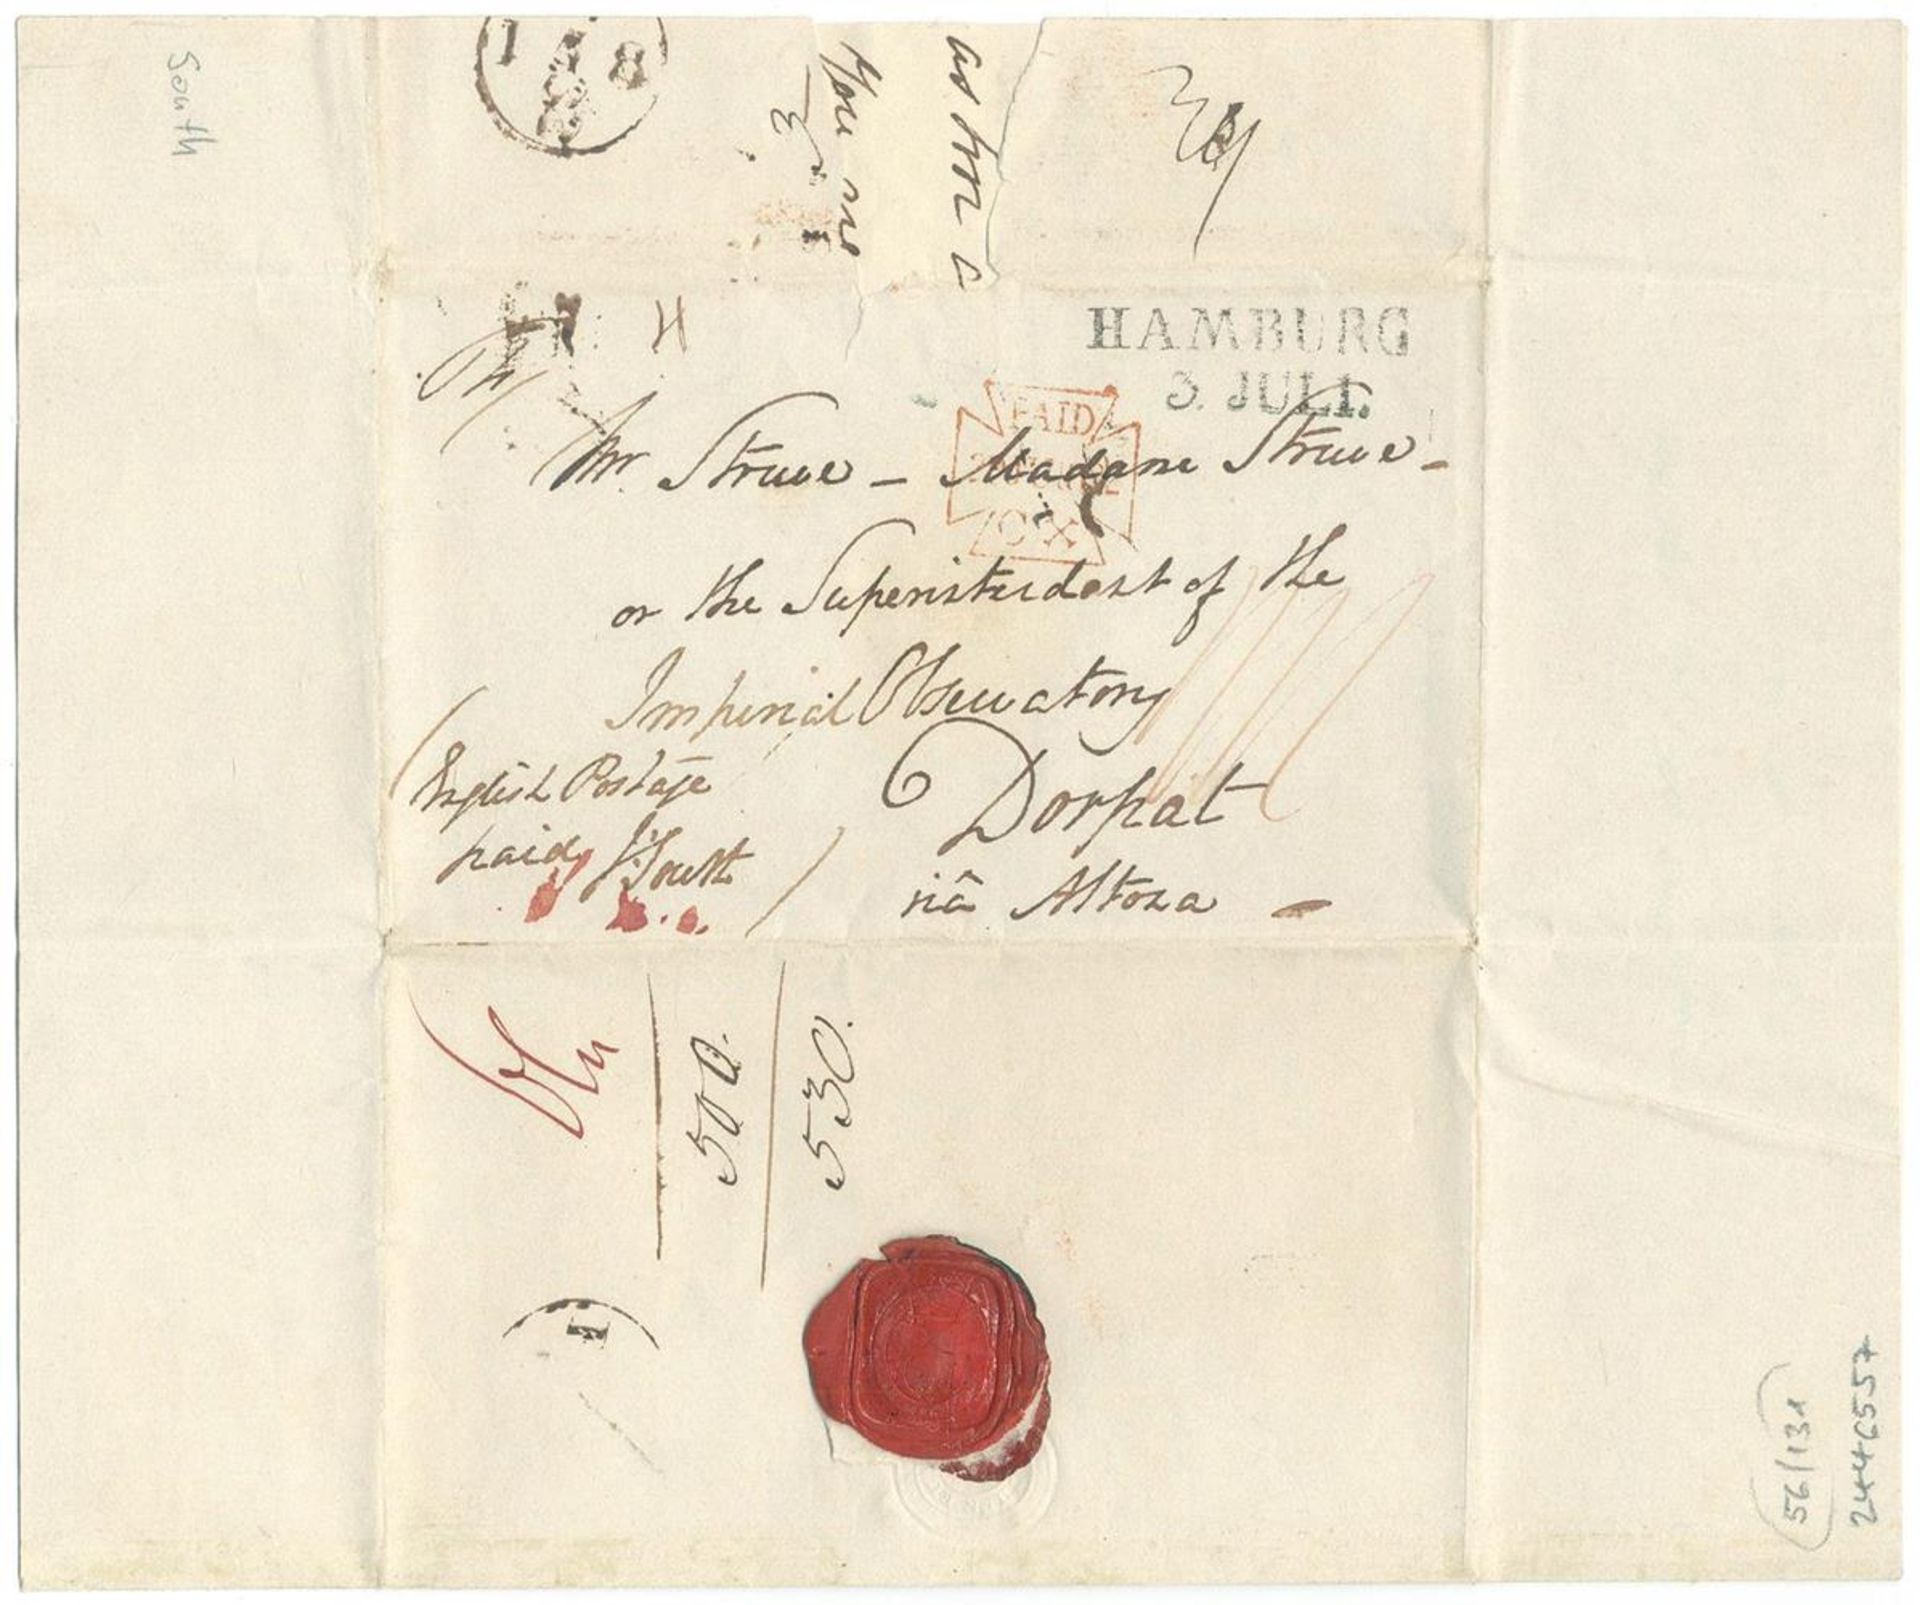 South
1 8
as from a
You are
HAMBURG
3. JULI.
H
PAID
CX
Mr Struve — Madame Struve —
or the Superintendent of the
Imperial Observatory
Dorpat
viâ Altona —
English Postage
paid J: South
500.
530.
56/131
2446557